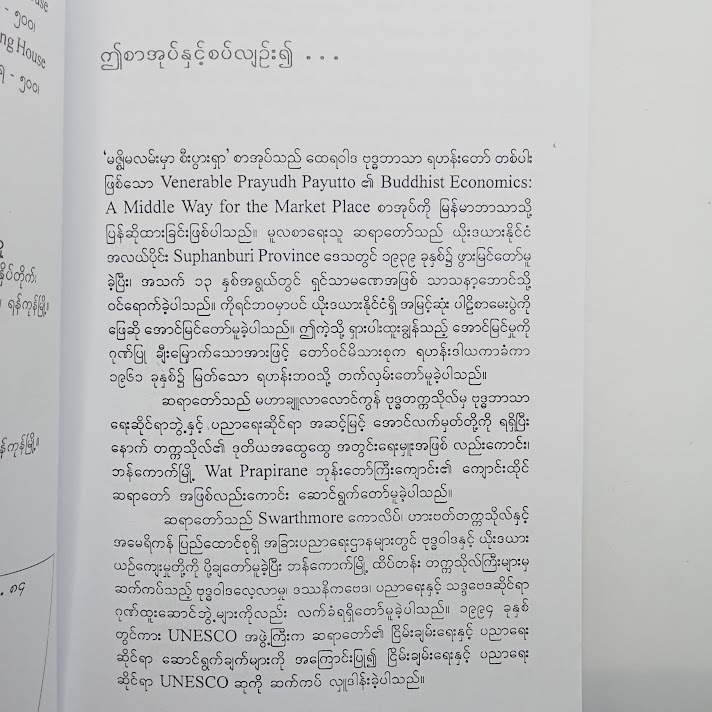 ouse
- ၅၀၀၊
ng House
- ၅၀၀၊
ှိပ်တိုက်၊
ရန်ကုန်မြို့။
န်ကုန်မြို့။
. ၈၄
ဤစာအုပ်နှင့်စပ်လျဉ်း၍ . . .
‘မဇ္ဈိမလမ်းမှာ စီးပွားရှာ’ စာအုပ်သည် ထေရဝါဒ ဗုဒ္ဓဘာသာ ရဟန်းတော် တစ်ပါး
ဖြစ်သော Venerable Prayudh Payutto ၏ Buddhist Economics:
A Middle Way for the Market Place စာအုပ်ကို မြန်မာဘာသာသို့
ပြန်ဆိုထားခြင်းဖြစ်ပါသည်။ မူလစာရေးသူ ဆရာတော်သည် ယိုးဒယားနိုင်ငံ
အလယ်ပိုင်း Suphanburi Province ဒေသတွင် ၁၉၃၉ ခုနှစ်၌ ဖွားမြင်တော်မူ
ခဲ့ပြီး၊ အသက် ၁၃ နှစ်အရွယ်တွင် ရှင်သာမဏေအဖြစ် သာသနာ့ဘောင်သို့
ဝင်ရောက်ခဲ့ပါသည်။ ကိုရင်ဘဝမှာပင် ယိုးဒယားနိုင်ငံရှိ အမြင့်ဆုံး ပါဠိစာမေးပွဲကို
ဖြေဆို အောင်မြင်တော်မူခဲ့ပါသည်။ ဤကဲ့သို့ ရှားပါးထူးချွန်သည့် အောင်မြင်မှုကို
ဂုဏ်ပြု ချီးမြှောက်သောအားဖြင့် တော်ဝင်မိသားစုက ရဟန်းဒါယကာခံကာ
၁၉၆၁ ခုနှစ်၌ မြတ်သော ရဟန်းဘဝသို့ တက်လှမ်းတော်မူခဲ့ပါသည်။
ဆရာတော်သည် မဟာချူလာလောင်ကွန် ဗုဒ္ဓတက္ကသိုလ်မှ ဗုဒ္ဓဘာသာ
ရေးဆိုင်ရာဘွဲ့နှင့် ပညာရေးဆိုင်ရာ အဆင့်မြင့် အောင်လက်မှတ်တို့ကို ရရှိပြီး
နောက် တက္ကသိုလ်၏ ဒုတိယအထွေထွေ အတွင်းရေးမှူးအဖြစ် လည်းကောင်း၊
ဘန်ကောက်မြို့ Wat Prapirane ဘုန်းတော်ကြီးကျောင်း၏ ကျောင်းထိုင်
ဆရာတော် အဖြစ်လည်းကောင်း ဆောင်ရွက်တော်မူခဲ့ပါသည်။
ဆရာတော်သည် Swarthmore ကောလိပ်၊ ဟားဗတ်တက္ကသိုလ်နှင့်
အမေရိကန် ပြည်ထောင်စုရှိ အခြားပညာရေးဌာနများတွင် ဗုဒ္ဓဝါဒနှင့် ယိုးဒယား
ယဉ်ကျေးမှုတို့ကို ပို့ချတော်မူခဲ့ပြီး ဘန်ကောက်မြို့ ထိပ်တန်း တက္ကသိုလ်ကြီးများမှ
ဆက်ကပ်သည့် ဗုဒ္ဓဝါဒလေ့လာမှု၊ ဒဿနိကဗေဒ၊ ပညာရေးနှင့် သဒ္ဒဗေဒဆိုင်ရာ
ဂုဏ်ထူးဆောင်ဘွဲ့များကိုလည်း လက်ခံရရှိတော်မူခဲ့ပါသည်။ ၁၉၉၄ ခုနှစ်
တွင်ကား UNESCO အဖွဲ့ကြီးက ဆရာတော်၏ ငြိမ်းချမ်းရေးနှင့် ပညာရေး
ဆိုင်ရာ ဆောင်ရွက်ချက်များကို အကြောင်းပြု၍ ငြိမ်းချမ်းရေးနှင့် ပညာရေး
ဆိုင်ရာ UNESCO ဆုကို ဆက်ကပ် လှူဒါန်းခဲ့ပါသည်။